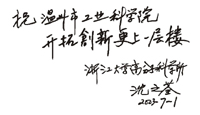 祝温州市工业科学院
开拓創新更上一层楼
浙江大学高分子科学所
沈之荃
2023-7-1